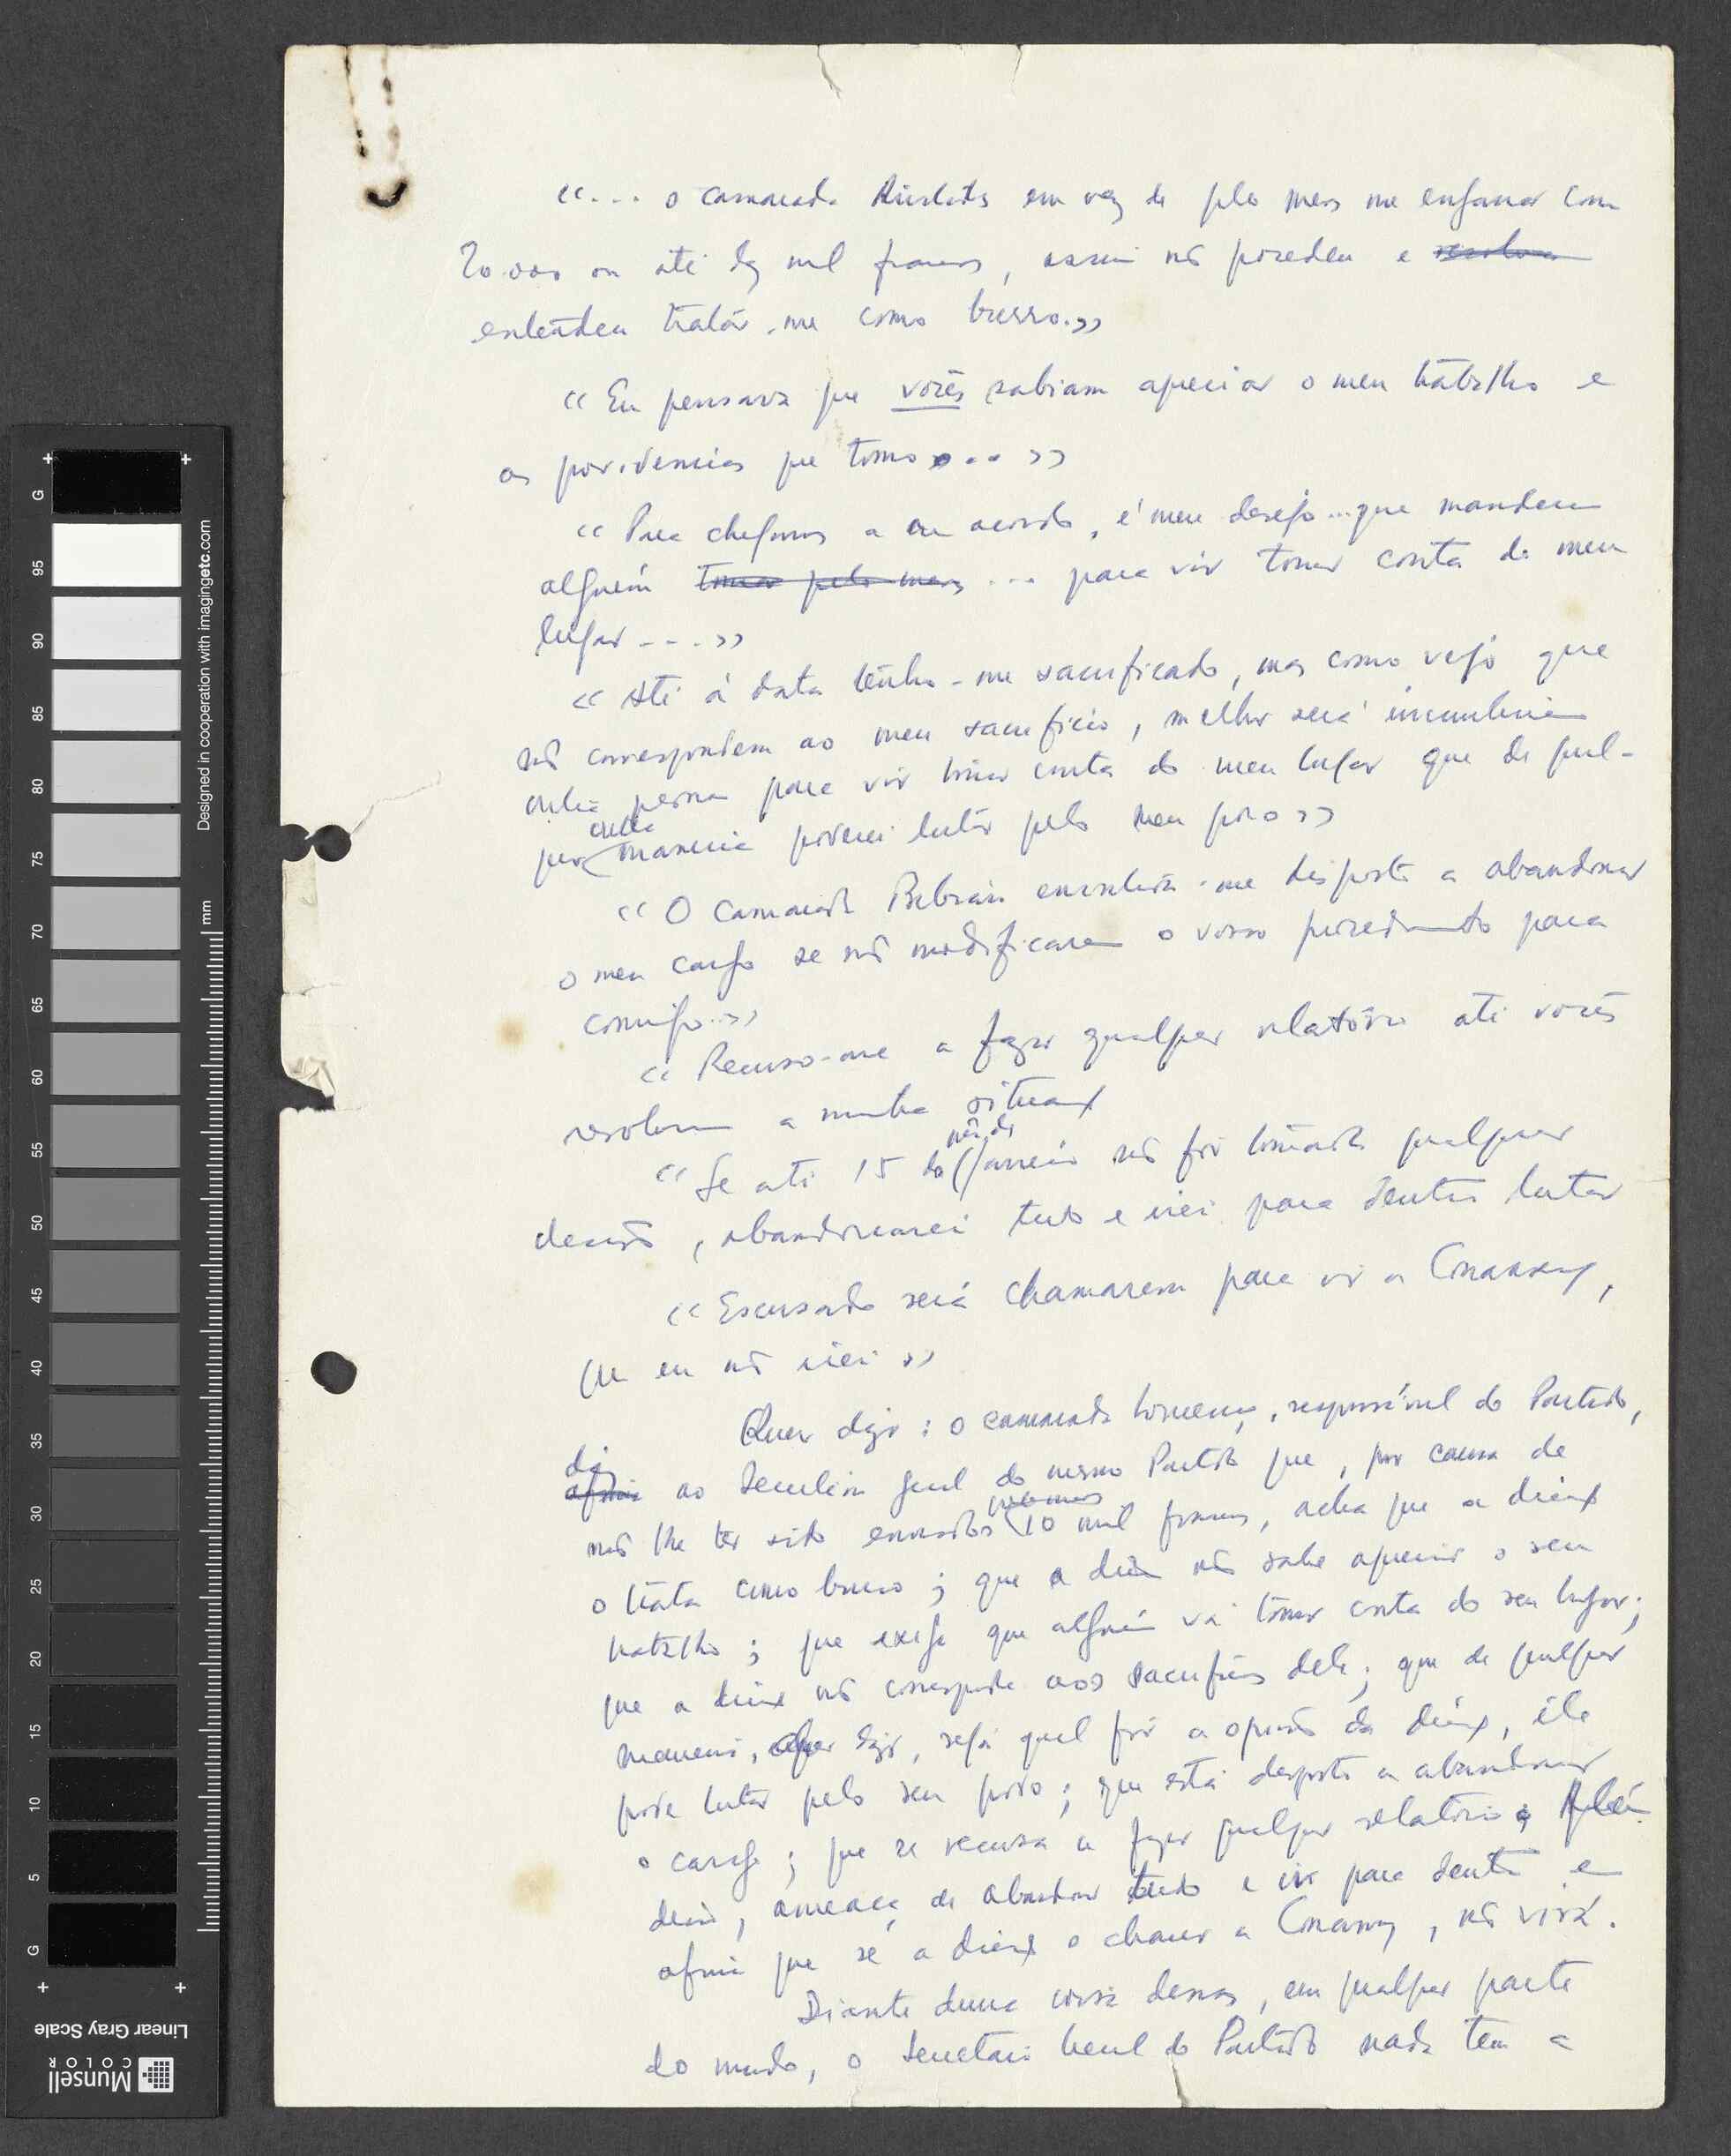 «... o camarada Aristides em vez de pelo menos me enganar com
20.000 ou até dez mil francos, assim não procedeu e
entendeu tratar-me como burro.»
«Eu pensava que vocês sabiam apreciar o meu trabalho e
as providencias que tomo...»
«Para chegarmos a um acordo, é meu desejo...que mandem
alguém tomar pelo menos ... para vir tomar conta do meu
lugar....»
«Até á data tenho-me sacrificado, mas como vejo que
não correspondem ao meu sacrificio, melhor será incumbirem
outra pessoa para vir tomar conta do meu lugar que de qual-
quer outra maneira poderei lutar pelo meu povo»
«O camarada encontra-me disposto a abandonar
o meu cargo se não modificarem o vosso procedimento para
comigo..»
«Recuso-me a fazer qualquer relatório até vocês
resolverem a minha situação
«Se até 15 do mês de Janeiro não for tomada qualquer
decisão, abandonarei tudo e irei para dentro lutar
«Escusado será chamarem para vir a Conakry,
que eu não irei»
Quer dizer: o camarada Lourenço, responsável do Partido,
diz afirma ao Secretário geral do nosso Partido que, por causa de
não lhe ter sido enviados 10 mil francos, acha que a direcção
o trata como burro; que a direcção não sabe apreciar o seu
trabalho; que exige que alguém vá tomar conta do seu lugar;
que a direcção não corresponde aos sacrificios dele; que de qualquer
maneira, quer dizer, seja qual for a opinião da direcção, êle
pode lutar pelo seu povo; que está disposto a abandonar
o cargo; que se recusa a fazer qualquer relatório. Além
disso, ameaça de abandonar tudo e ir para dentro e
afirma que se a direcção o chamar a Conakry, não virá.
Diante duma coisa dessas, em qualquer parte
do mundo, o Secretario Geral do Partido nada tem a
Munsell
COLOR
Linear Gray Scale
Designed in cooperation with imagingetc.com
mm
G
95
90
85
80
75
70
65
60
55
50
45
40
35
30
25
20
15
10
5
G